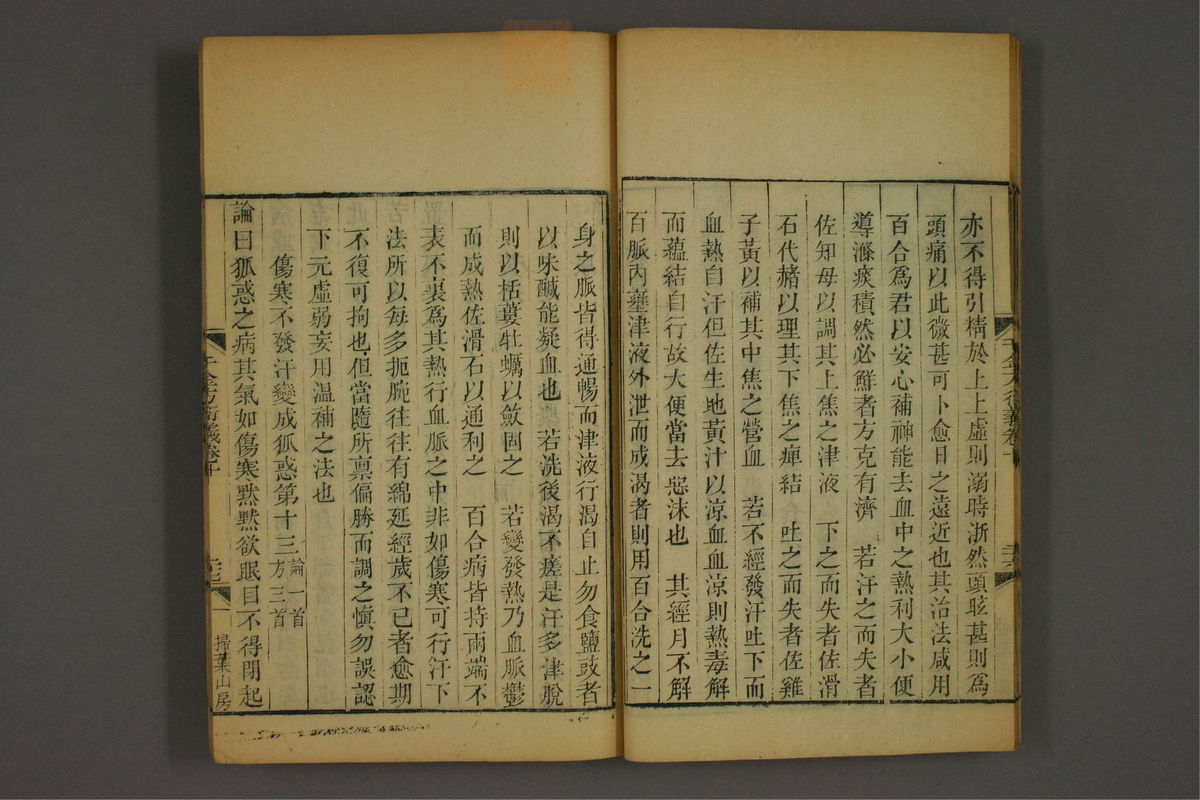 亦不得引精於上上虛則溺時淅然頭眩甚則爲
頭痛以此微甚可卜愈日之遠近也其治法咸用
百合爲君以安心補神能去血中之熱利大小便
導滌痰積然必鮮者方克有濟　若汗之而失者
佐知母以調其上焦之津液　下之而失者佐滑
石代赭以理其下焦之痺結　吐之而失者佐雞
子黃以補其中焦之營血　若不經發汗吐下而
血熱自汗但佐生地黃汁以涼血血涼則熱毒解
而蘊結自行故大便當去惡沫也　其經月不解
百脈內壅津液外泄而成渴者則用百合洗之一
身之脈皆得通暢而津液行渴自止勿食鹽豉者
以味鹹能凝血也　若洗後渴不瘥是汗多津脫
則以栝蔞牡蠣以斂固之　若變發熱乃血脈鬱
而成熱佐滑石以通利之　百合病皆持兩端不
表不裏爲其熱行血脈之中非如傷寒可行汗下
法所以每多扼腕往往有綿延經歲不已者愈期
不復可拘也但當隨所禀偏勝而調之愼勿誤認
下元虛弱妄用溫補之法也
傷寒不發汗變成狐惑第十三論一首方三首
論曰狐惑之病其氣如傷寒默默欲眠目不得閉起
千金方衍義卷十
掃葉山房